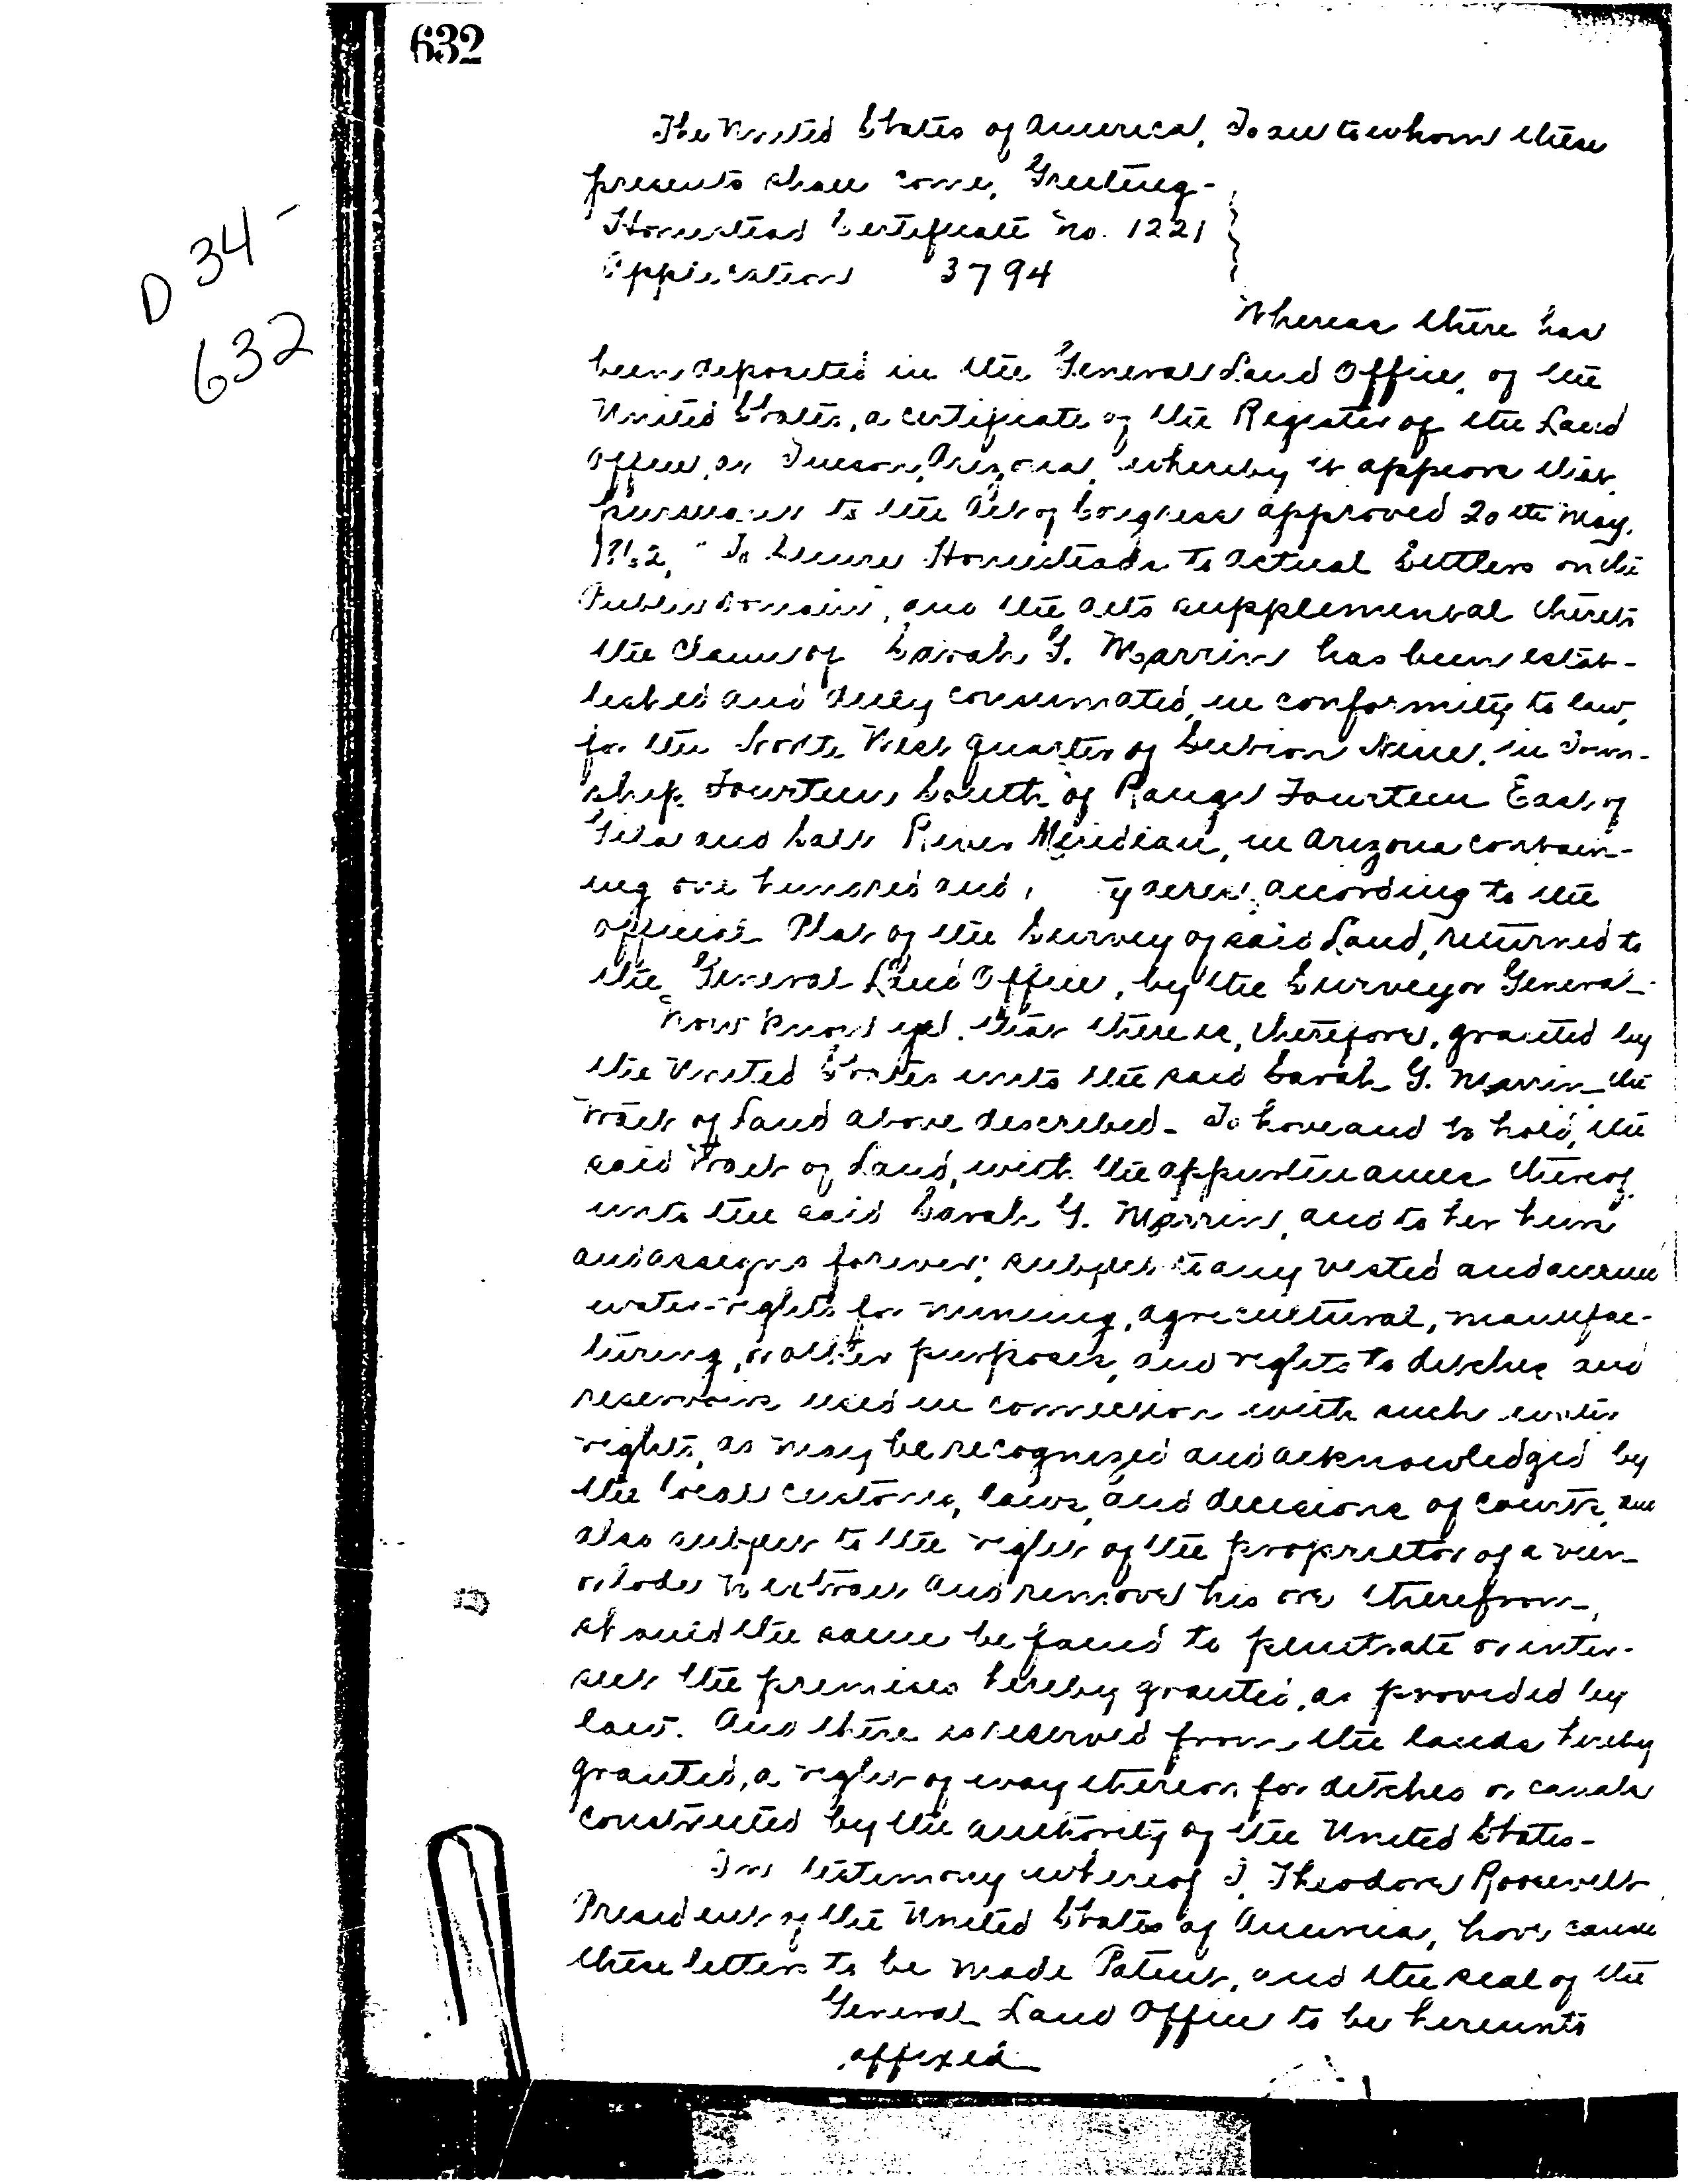 632
D 34-
632
The United States of America, To all to whom these
presents shall come, Greeting-
Homestead Certificate No. 1221
Application 3794
Whereas there has
been deposited in the General Land Office, of the
United States, a certificate of the Register of the Land
Office, at Tucson, Arizona, whereby it appears that,
pursuant to the Act of Congress approved 20th May,
"To Secure Homesteads to actual Settlers on the
Public Domain", and the acts supplemental thereto
the claim of Sarah G. Marrin has been estab-
lished and duly consumated, in conformity to law,
for the North West quarter of Section Nine, in Town-
ship Fourteen South of Range Fourteen East of
Gila and Salt River Meridian, in Arizona contain-
ing one hundred and ty acres, according to the
official Plat of the Survey of said Land, returned to
the General Land Office, by the Surveyor General-
Now know ye, that there is, therefore, granted by
the United States unto the said Sarah G. Marrin the
tract of Land above described- To have and to hold, the
said tract of Land, with the appurtenances thereof,
unto the said Sarah G. Marrin, and to her heirs
and assigns forever; subject to any vested and accrued
water-rights for mining, agricultural, manufac-
turing, or other purposes, and rights to ditches and
reservoirs used in connection with such water
rights, as may be recognized and acknowledged by
the local customs, laws, and decisions of courts, and
also subject to the right of the proprietor of a vein
or lode to extract and remove his ore therefrom,
should the same be found to penetrate or inter-
sect the premises hereby granted, as provided by
law. And there is reserved from the lands hereby
granted, a right of way thereon for ditches or canals
constructed by the authority of the United States-
In testimony whereof I, Theodore Roosevelt
President of the United States of America, have cause
these letters to be made Patent, and the seal of the
General Land Office to be hereunto
affixed